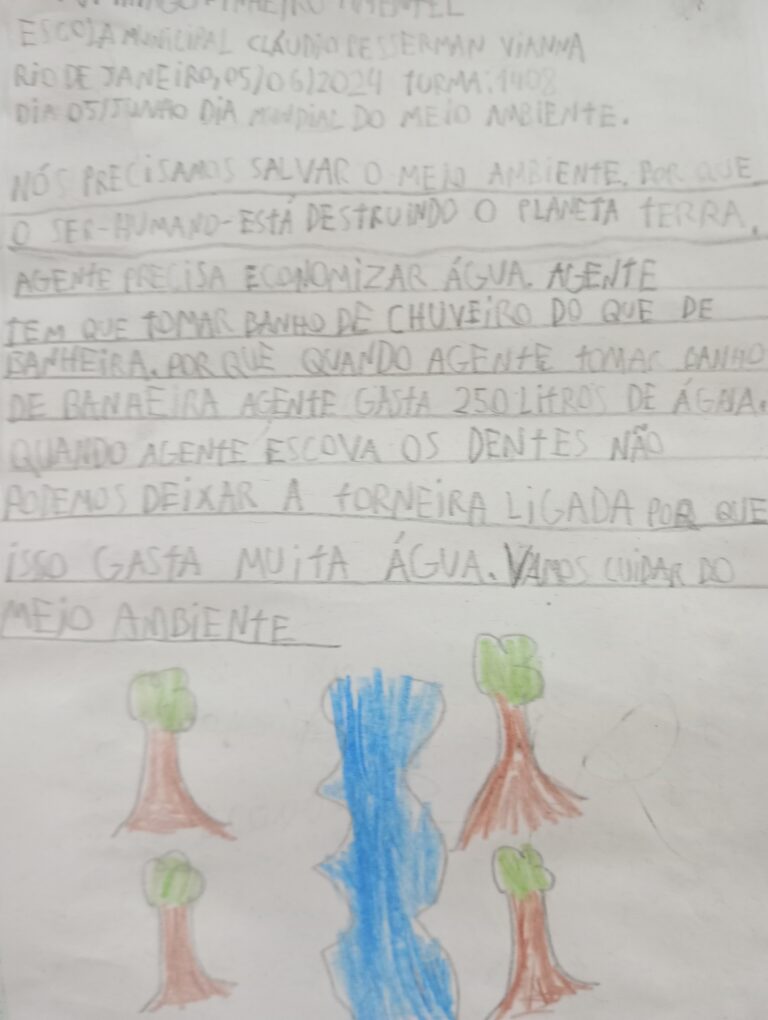 PINHEIRO PIMENTEL
ESCOLA MUNICIPAL CLÁUDIO BESSERMAN VIANNA
RIO DE JANEIRO, 05/06/2024 TURMA: 1408
DIA 05/JUNHO DIA MUNDIAL DO MEIO AMBIENTE.
NÓS PRECISAMOS SALVAR O MEIO AMBIENTE. POR QUE
O SER-HUMANO-ESTÁ DESTRUINDO O PLANETA TERRA.
AGENTE PRECISA ECONOMIZAR ÁGUA. AGENTE
TEM QUE TOMAR BANHO DE CHUVEIRO DO QUE DE
BANHEIRA. POR QUE QUANDO AGENTE TOMAR BANHO
DE BANHEIRA AGENTE GASTA 250 LITROS DE ÁGUA.
QUANDO AGENTE ESCOVA OS DENTES NÃO
PODEMOS DEIXAR A TORNEIRA LIGADA POR QUE
ISSO GASTA MUITA ÁGUA. VAMOS CUIDAR DO
MEIO AMBIENTE